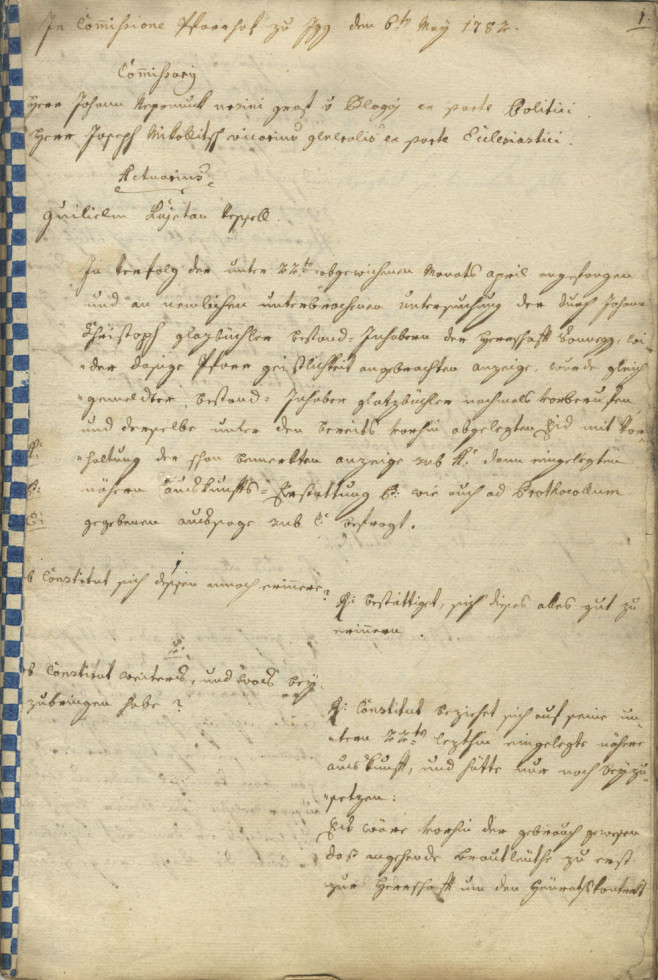 1.
In Commissione Pfarrhof zu Igg den 6ten Mey 1782.
Commissarij
Herr Johann Nepomuk Graf v Blagaÿ ex parte Politici.
Herr Joseph Mikollitsch vicarius generalis ex parte Ecclesiastici.
Actuarius
Guilielm Kajetan Keppell.
In Verfolg der unter 22ten abgewichenen Monats April angefangen
und an neulichen unterbrochenen untersuchung der durch Johann
Christoph glazbüchler bestand: Inhabern der Herrschaft Sonnegg, wi-
der dasige Pfarr geistlichkeit angebrachten anzeige, wurde gleich
gemeldter bestand: Inhaber glatzbüchler nochmals vorberufen,
und derselbe unter den bereits vorhin abgelegten Eid mit Vor-
A: haltung der schon bemerkten anzeige sub A: dann eingelegten
B: nähern auskunfts-Erstattung B: wie auch ad Prothocollum
C: gegebenen aussage sub C: befragt.
1
ob Constitut sich dessen annoch erinnere?
R: bestättiget, sich dieses alles gut zu
erinnern.
2:
ob Constitut weiters, und was beÿ
zubringen habe?
R: Constitut beziehet sich auf seine un-
tern 22ten lezthin eingelegte nähere
auskunft, und hätte nur noch beyzu-
setzen:
Es wäre vorhin der gebrauch gewesen
daß angehende brautleuthe zu erst
zur Herrschaft um den Heuraths kontrakt